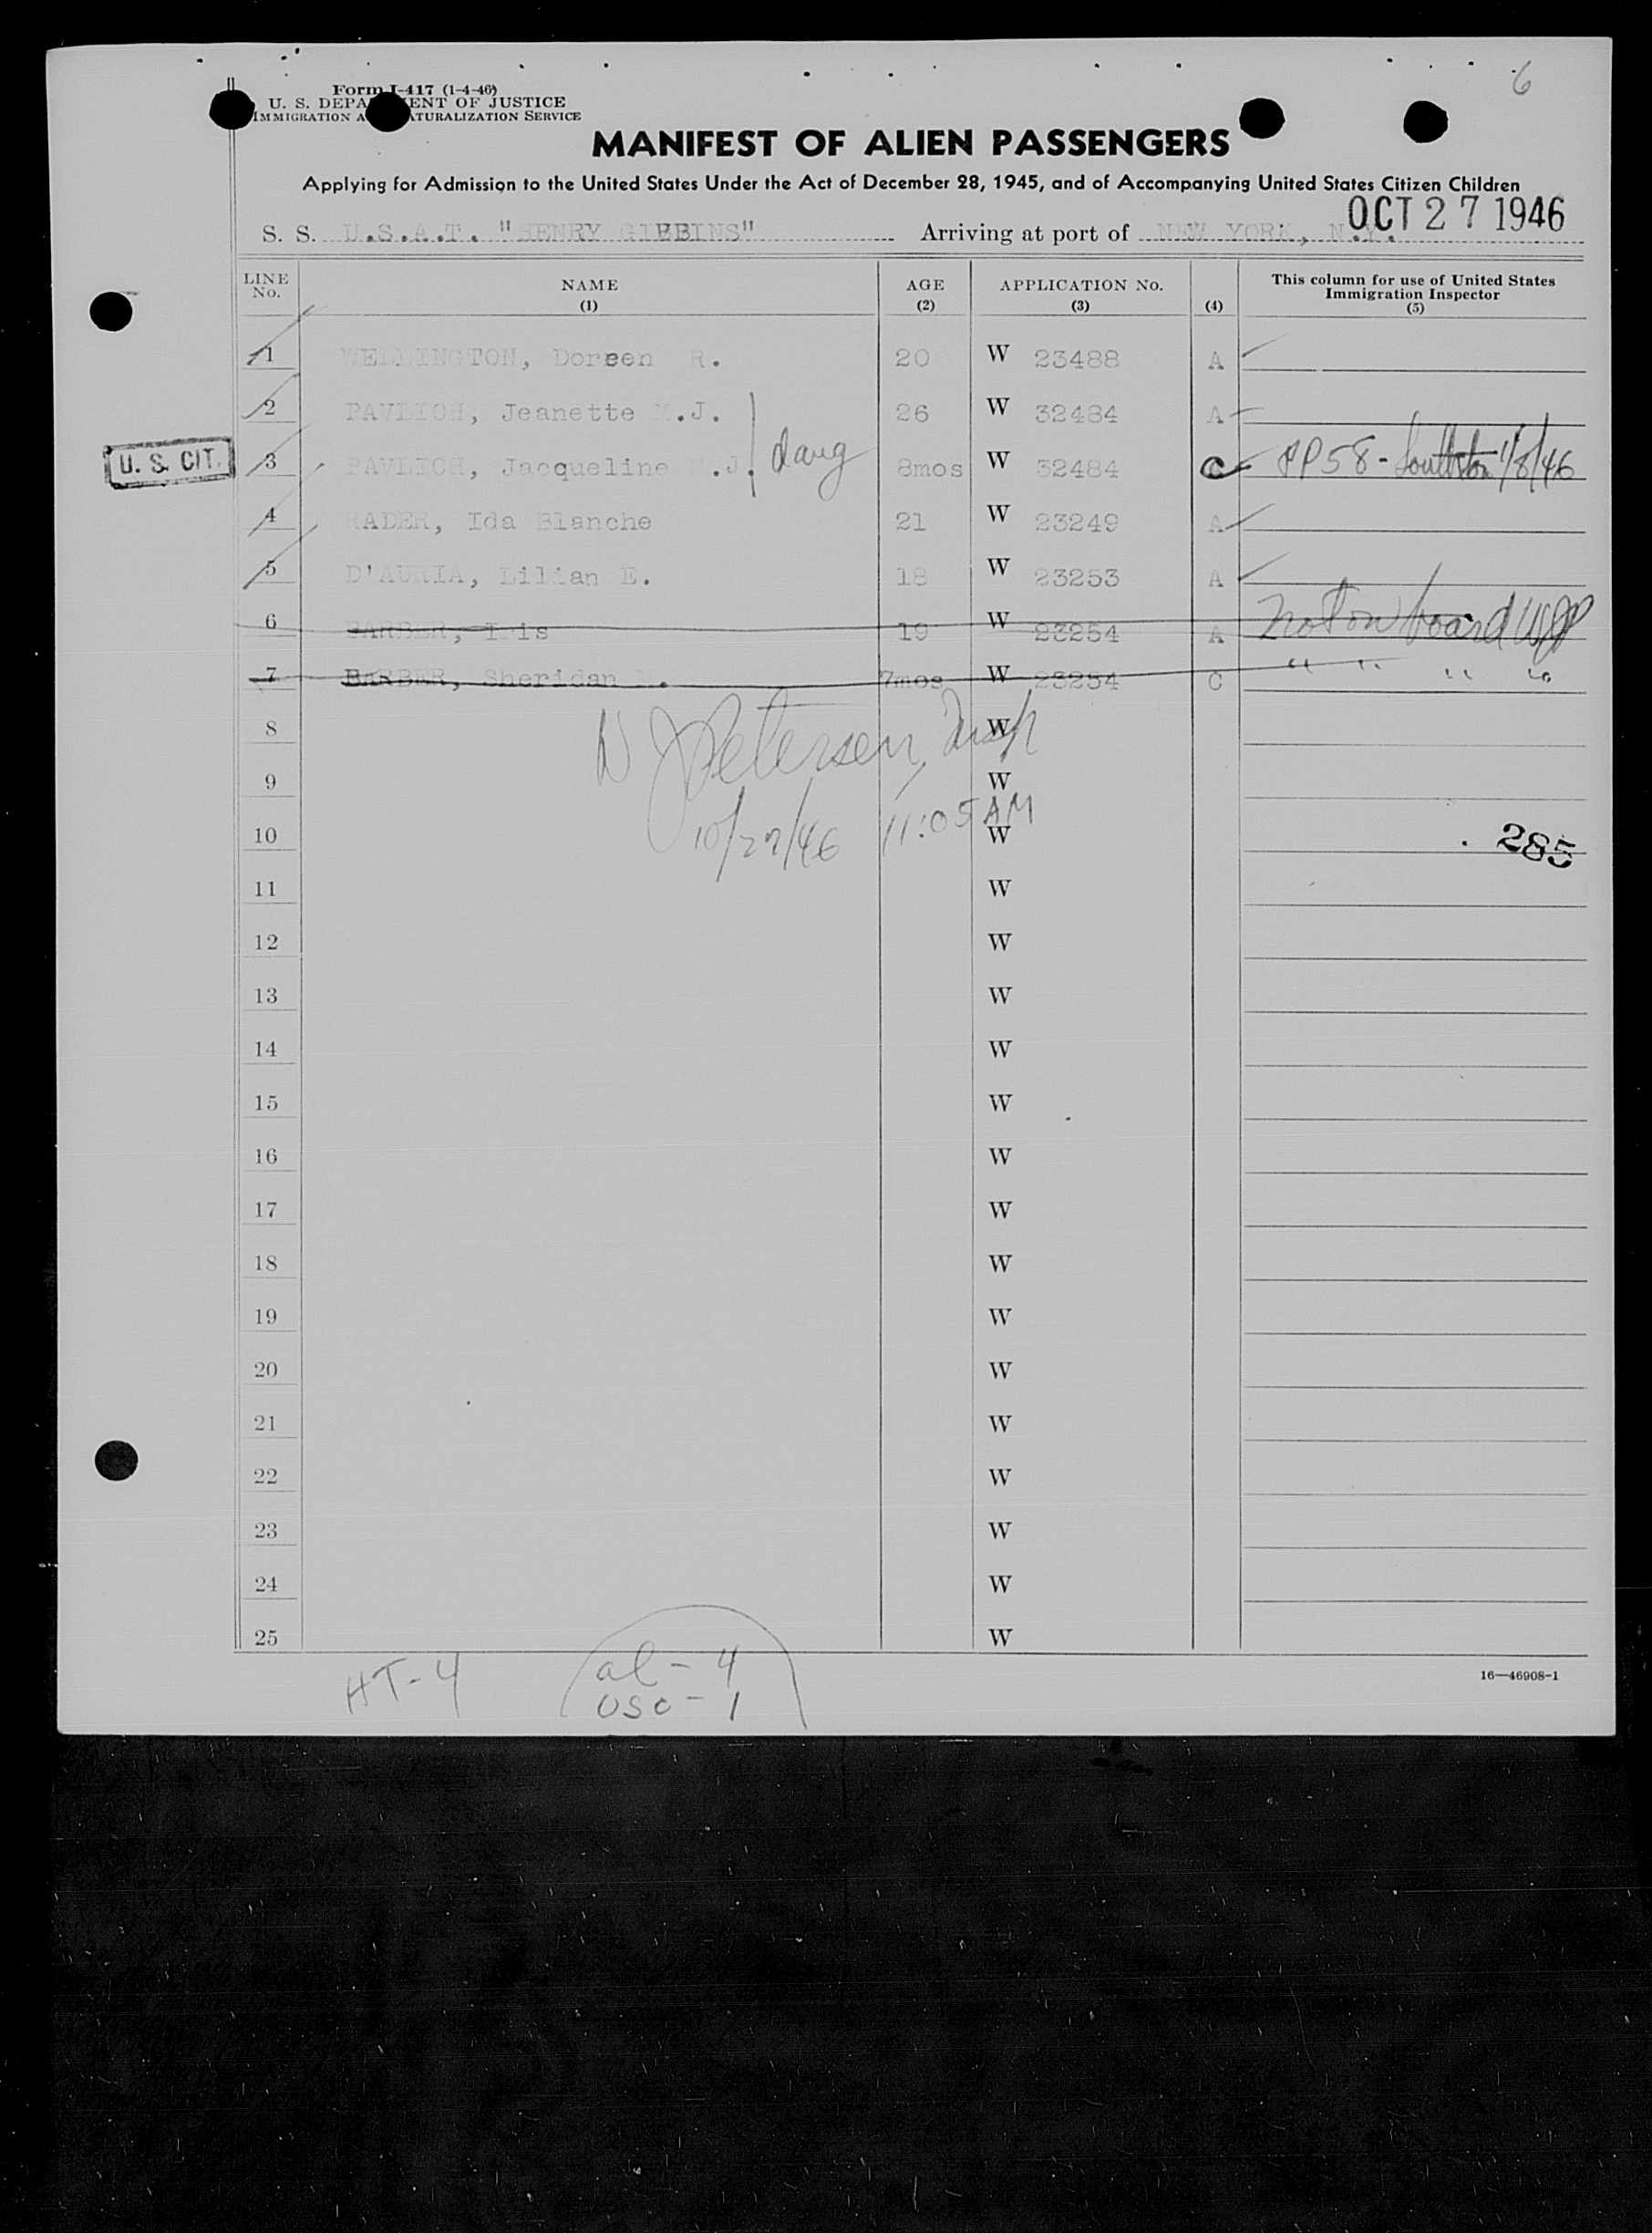 6
Form I-417 (1-4-46)
U. S. DEPA ENT OF JUSTICE
IMMIGRATION A ATURALIZATION SERVICE
MANIFEST OF ALIEN PASSENGERS
Applying for Admission to the United States Under the Act of December 28, 1945, and of Accompanying United States Citizen Children
S. S. U.S.A.T. "HENRY GIBBINS" Arriving at port of NEW YORK, N.Y. OCT 27 1946
LINE No. NAME (1) AGE (2) APPLICATION No. (3) (4) This column for use of United States Immigration Inspector (5)
1 WELLINGTON, Doreen R. 20 W 23488 A
2 PAVLICH, Jeanette M.J. 26 W 32484 A
U. S. CIT. 3 PAVLICH, Jacqueline M.J. daug 8mos W 32484 C PP58 - Southton 1/8/46
4 RADER, Ida Blanche 21 W 23249 A
5 D'AURIA, Lilian E. 18 W 23253 A
6 BARBER, Iris 19 W 23254 A Not on board WJP
7 BARBER, Sheridan M. 7mos W 23254 C " " " "
8 W
W J Petersen, Insp
9 W
10/27/46 11:05 AM
10 W . 285
11 W
12 W
13 W
14 W
15 W
16 W
17 W
18 W
19 W
20 W
21 W
22 W
23 W
24 W
25 W
HT-4 al - 4
USC - 1
16—46908-1